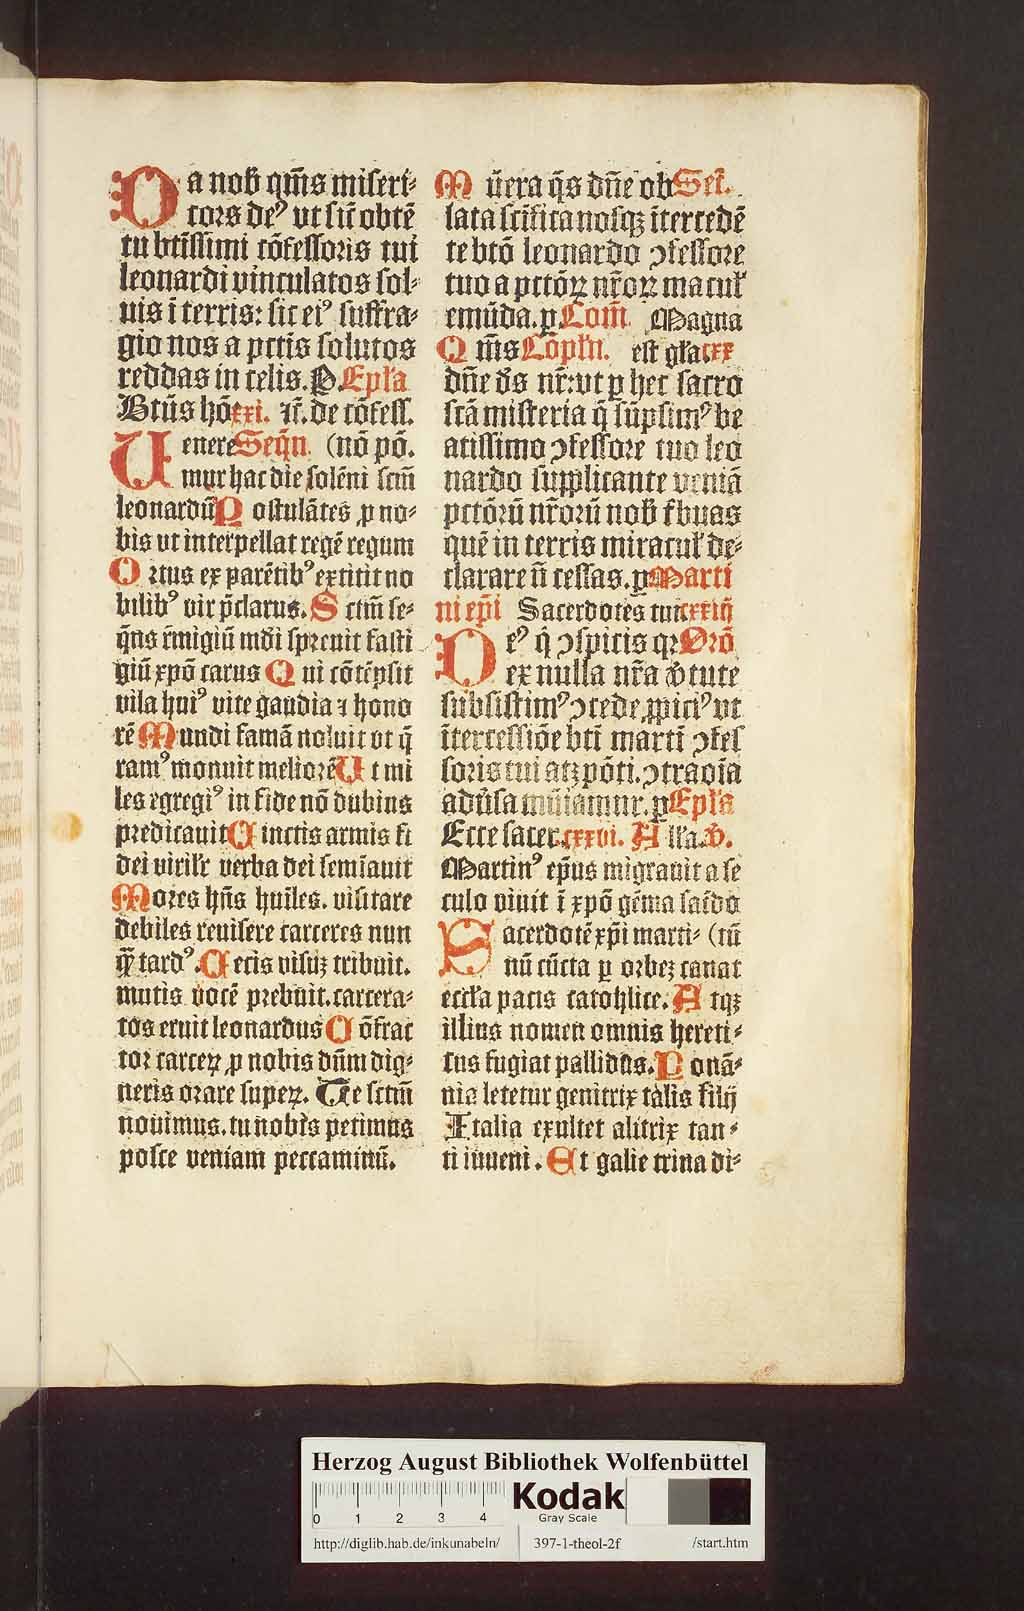 Da nob̄ qm̄s miseri-
cors deꝰ vt sicͭ obtē
tu btīssimi cōfessoris tui
leonardi vinculatos sol-
uis ī terris: sic eiꝰ suffra-
gio nos a pctīs solutos
reddas in celis. P. Epl̄a
Btūs hō cxi. et̄. de cōfess.
Uenere Seqn̄ (nō pō.
mur hac die solēni sctm̄
leonardū Postulātes ꝓ no-
bis vt interpellat regē regum
Ortus ex parētibꝰ extitit no
bilibꝰ vir p̄clarus. Sctm̄ se-
q̄ns rēmigiū mdi spreuit fasti
giū xpō carus Qui cōtēpsit
vila huiꝰ vite gaudia ⁊ hono
rē Mundi famā noluit vt q̄
ramꝰ monuit meliorē Ut mi
les egregiꝰ in fide nō dubius
predicauit Cinctis armis fi
dei virilr̄ verba dei semīauit
Mores hn̄s huīles. visitare
debiles reuisere carceres nun
qꝫ tardꝰ. Cecis visūꝫ tribuit.
mutis vocē prebuit. carcera-
tos eruit leonardus Cōfrac
tor carceꝝ ꝓ nobis dn̄m dig-
neris orare supeꝝ. Te sctm̄
nouimus. tu nobīs petimus
posce veniam peccaminū.
Mūera q̄s dn̄e ob Sec̄.
lata scīfica nosqꝫ ītercedē
te btō leonardo ꝯfessore
tuo a pctōꝝ nr̄oꝝ macul̄
emūda. p Com̄ Magna
Qm̄s Cōpln̄. est gl̄a cxx
dn̄e ds̄ nr̄: vt p hec sacro
scā misteria q̄ sūpsimꝰ be
atissimo ꝯfessore tuo leo
nardo supplicante veniā
pctōrū nr̄orū nob̄ tbuas
quē in terris miracul̄ de-
clarare n̄ cessas. p Marti
ni epī Sacerdotes tui cxxiij
Deꝰ q̄ ꝯspicis qꝛ Orō
ex nulla nr̄a v̄tute
subsistimꝰ ꝯcede ꝓpiciꝰ vt
ītercessiōe btī martī ꝯfes
soris tui atqꝫ pōti. ꝯtra oīa
adūsa mūiamur. p Epl̄a
Ecce sacer. cxxvi. Alla. v̄.
Martinꝰ ep̄us migrauit a se
culo viuit ī xpō gēma sac̄do
Sacerdotē xp̄i marti- (tū
nū cūcta p orbeꝫ canat
eccl̄a pacis catohlice. Atqꝫ
illius nomen omnis hereti-
cus fugiat pallidus. Ponā-
nia letetur genitrix talis filij
Italia exultet alitrix tan-
ti iuueni. Et galie trina di-
Herzog August Bibliothek Wolfenbüttel
0 1 2 3 4
Kodak
Gray Scale
http://diglib.hab.de/inkunabeln/ 397-1-theol-2f /start.htm